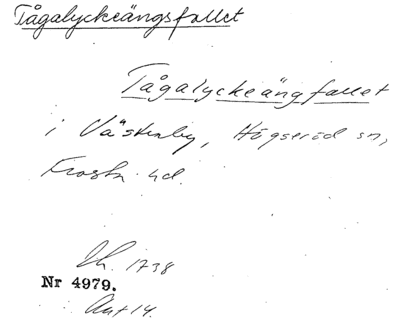 Tågalyckeängsfallet
Tågalyckeängfallet
i Västerby, Högseröd sn,
Frosta hd.
Lh. 1738
Nr 4979.
Akt 14.